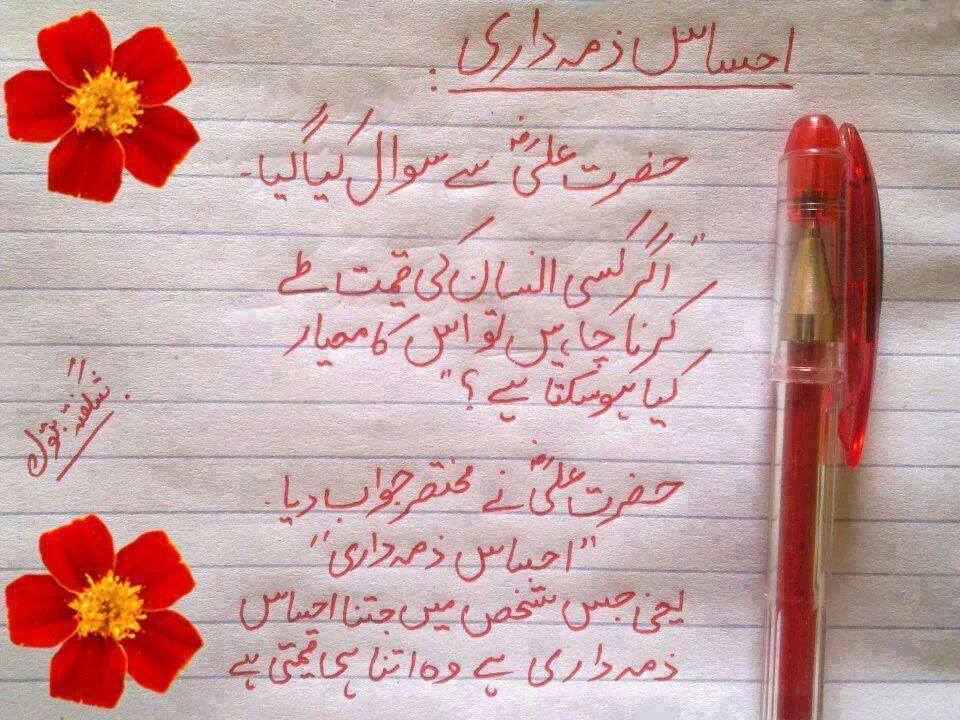 احساس ذمہ داری.
حضرت علیؓ سے سوال کیا گیا۔
"اگر کسی انسان کی قیمت طے
کرنا چاہیں تو اس کا معیار
کیا ہو سکتا ہے؟"
حضرت علیؓ نے مختصر جواب دیا.
"احساس ذمہ داری"
یعنی جس شخص میں جتنا احساس
ذمہ داری ہے وہ اتنا ہی قیمتی ہے
شگفتہ بتول